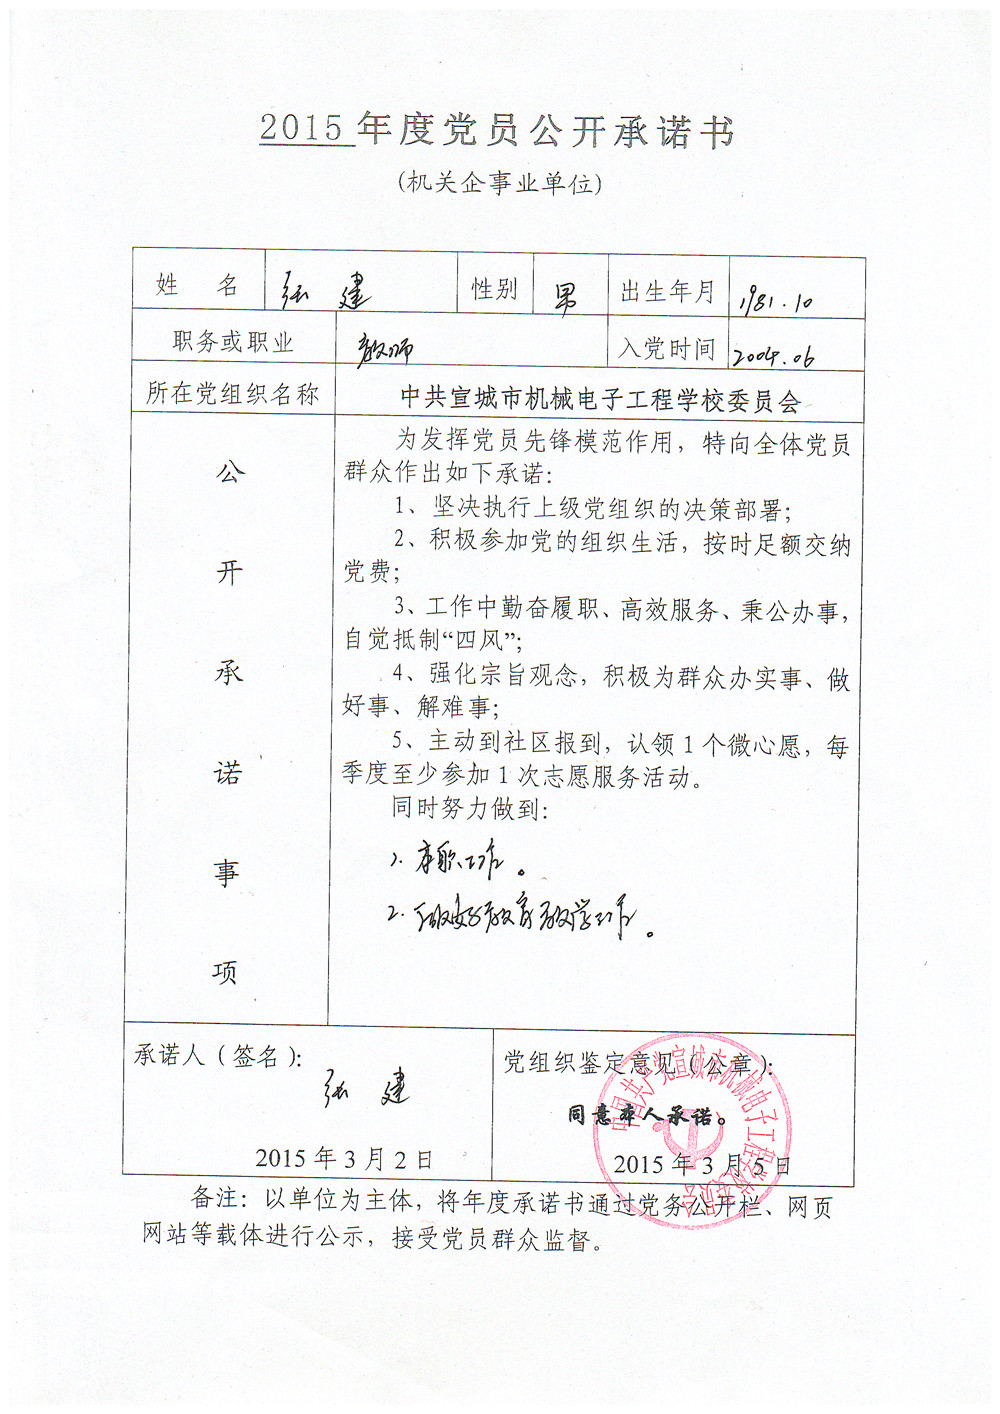 2015年度党员公开承诺书
(机关企事业单位)
姓 名 张建 性别 男 出生年月 1981.10
职务或职业 教师 入党时间 2004.06
所在党组织名称 中共宣城市机械电子工程学校委员会
公开承诺事项
为发挥党员先锋模范作用，特向全体党员
群众作出如下承诺：
1、坚决执行上级党组织的决策部署；
2、积极参加党的组织生活，按时足额交纳
党费；
3、工作中勤奋履职、高效服务、秉公办事，
自觉抵制“四风”；
4、强化宗旨观念，积极为群众办实事、做
好事、解难事；
5、主动到社区报到，认领1个微心愿，每
季度至少参加1次志愿服务活动。
同时努力做到：
1. 本职工作。
2. 做好教育教学工作。
承诺人（签名）：
张建
2015年3月2日
党组织鉴定意见（公章）：
同意本人承诺。
2015年3月5日
中国共产党宣城市机械电子工程学校委员会
备注：以单位为主体，将年度承诺书通过党务公开栏、网页
网站等载体进行公示，接受党员群众监督。